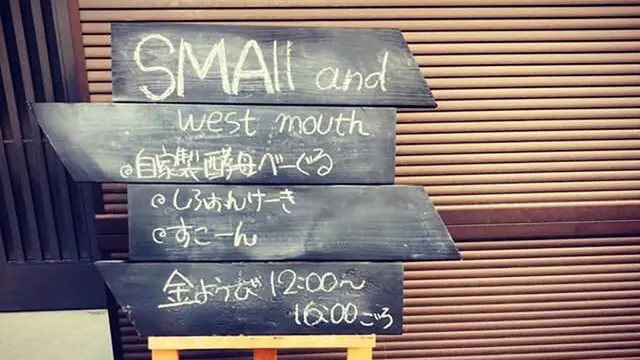 SMAll and
west mouth
@自家製酵母べーぐる
@しふぉんけーき
@すこーん
金ようび 12:00〜
16:00ごろ